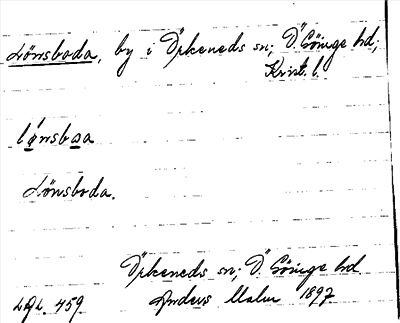 Lönsboda, by i Örkeneds sn; Ö. Göinge hd;
Krist. l.
lønsboa
Lönsboda.
Örkeneds sn; Ö. Göinge hd.
459. Anders Malm 1897